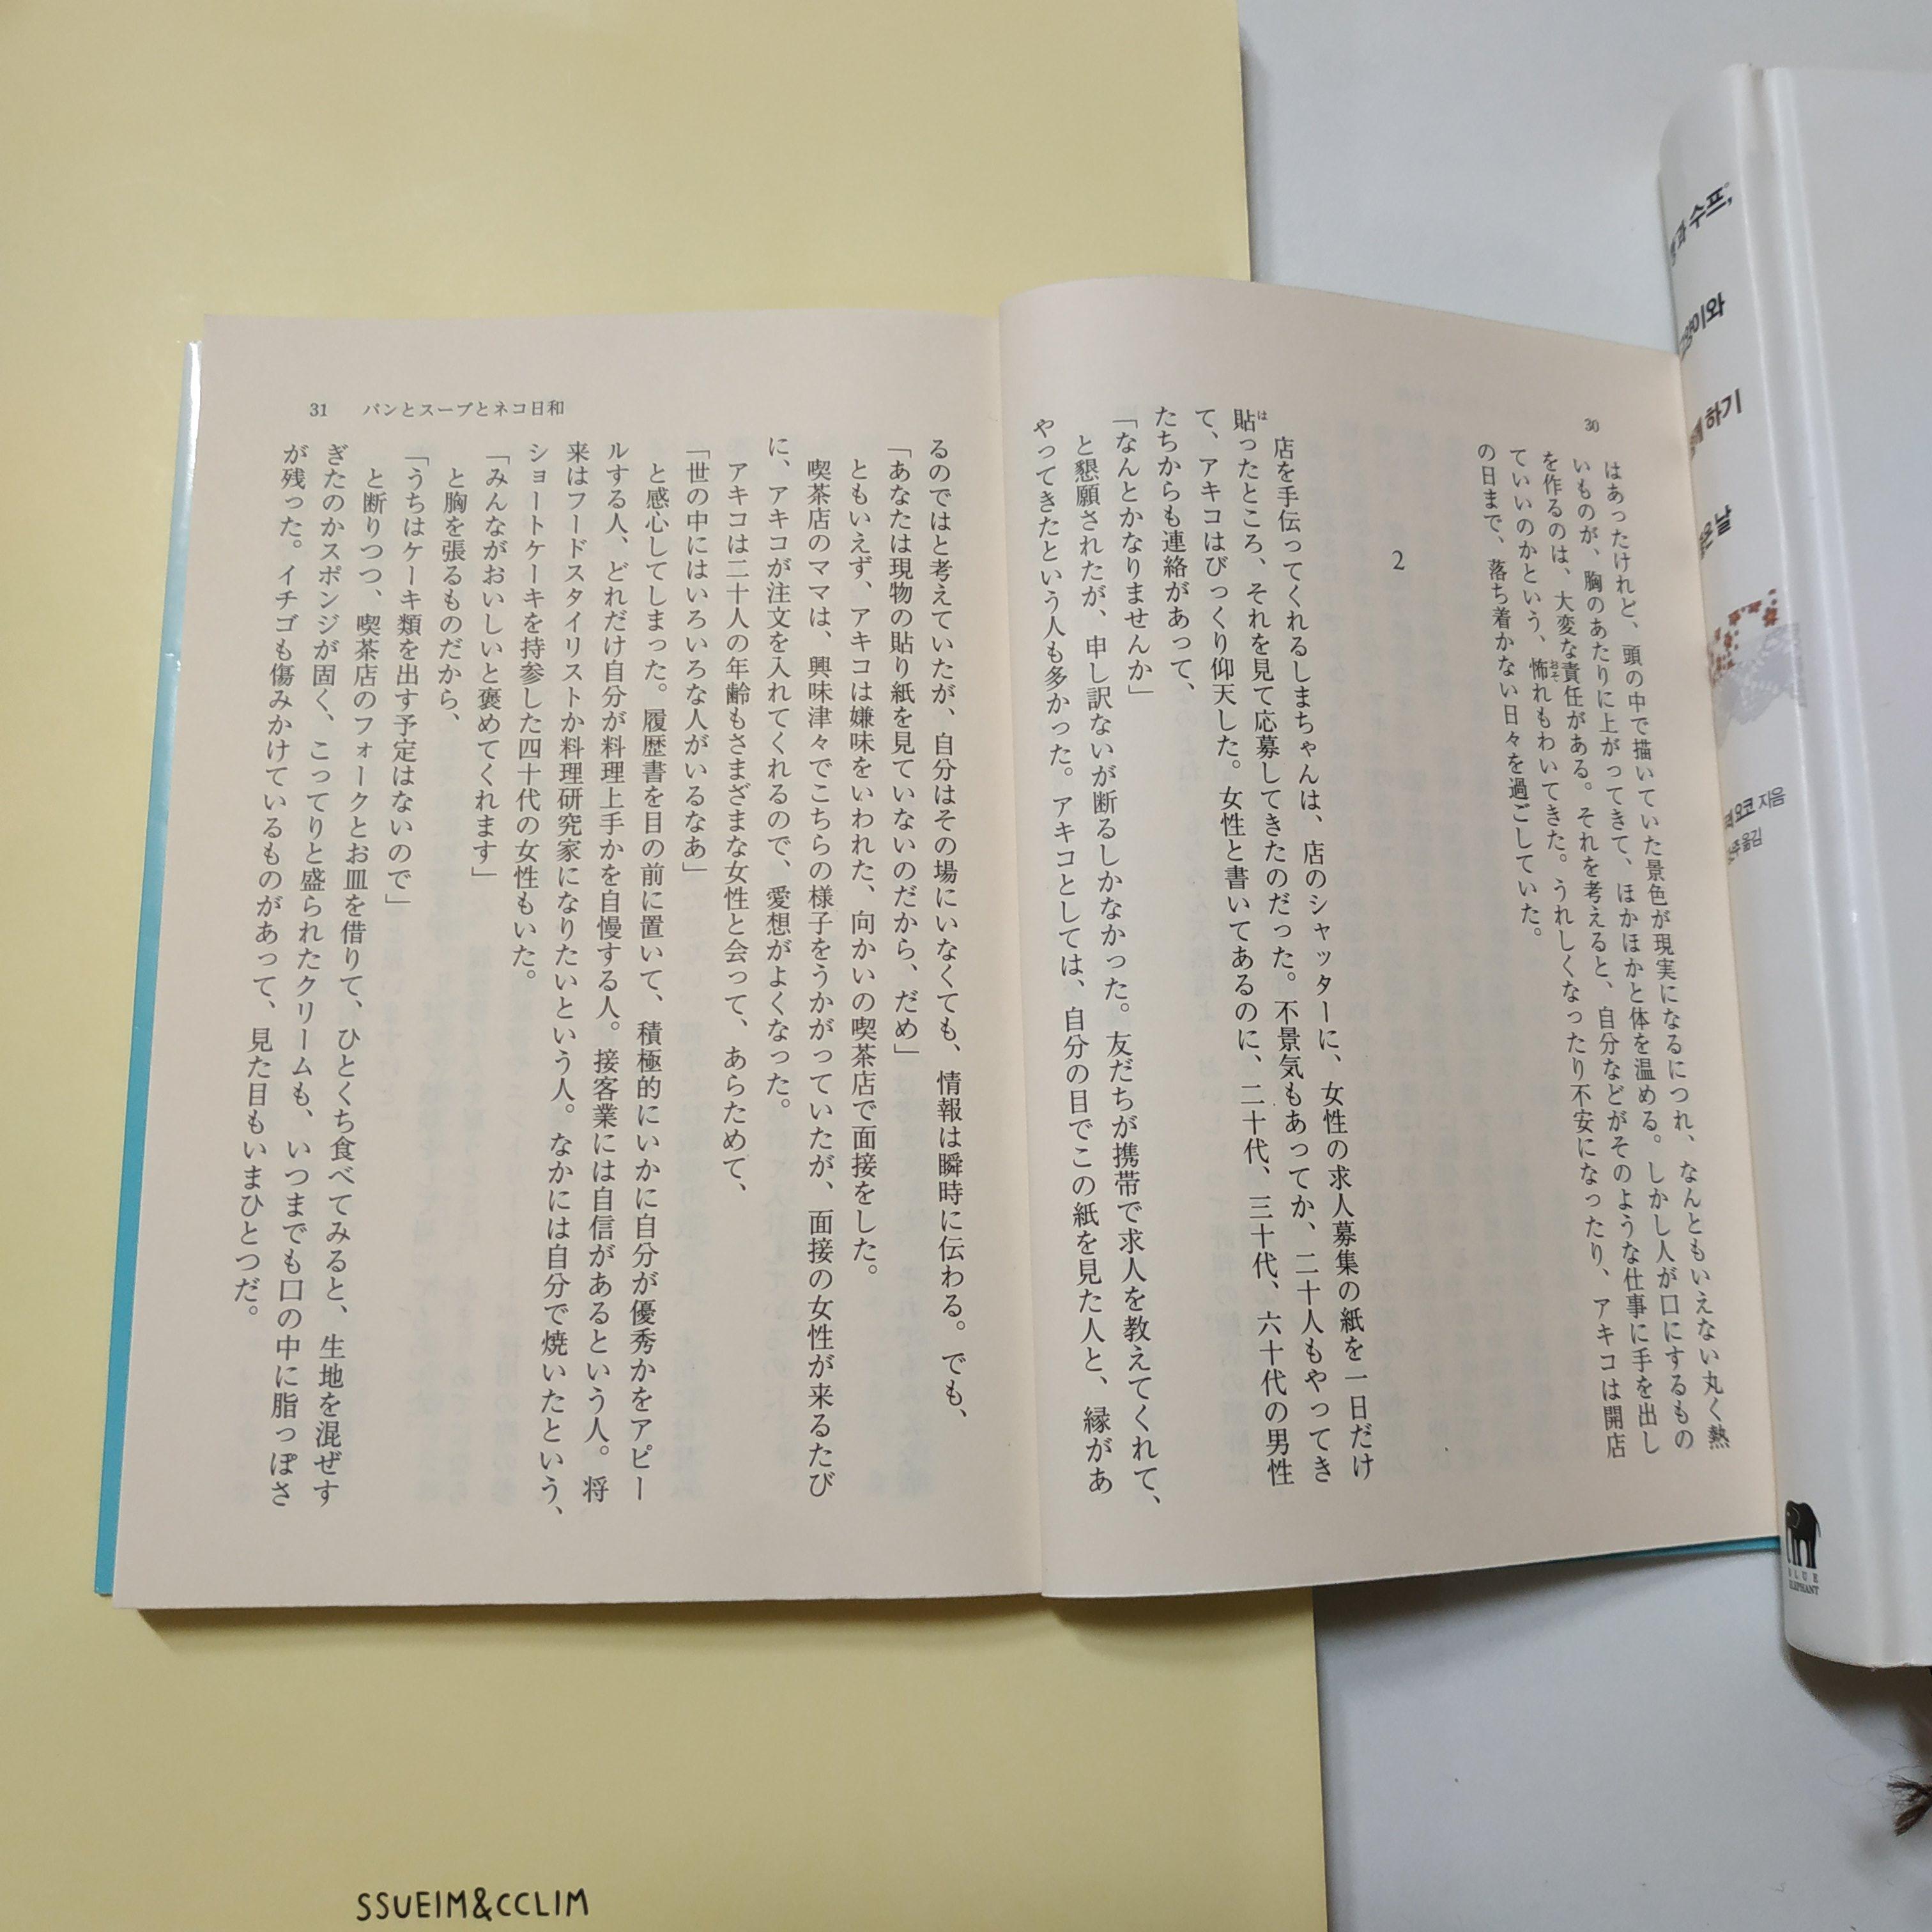 30
はあったけれど、頭の中で描いていた景色が現実になるにつれ、なんともいえない丸く熱
いものが、胸のあたりに上がってきて、ほかほかと体を温める。しかし人が口にするもの
を作るのは、大変な責任がある。それを考えると、自分などがそのような仕事に手を出し
ていいのかという、怖れもわいてきた。うれしくなったり不安になったり、アキコは開店
の日まで、落ち着かない日々を過ごしていた。
おそ
2
店を手伝ってくれるしまちゃんは、店のシャッターに、女性の求人募集の紙を一日だけ
貼ったところ、それを見て応募してきたのだった。不景気もあってか、二十人もやってき
は
て、アキコはびっくり仰天した。女性と書いてあるのに、二十代、三十代、六十代の男性
たちからも連絡があって、
「なんとかなりませんか」
と懇願されたが、申し訳ないが断るしかなかった。友だちが携帯で求人を教えてくれて、
やってきたという人も多かった。アキコとしては、自分の目でこの紙を見た人と、縁があ
31 パンとスープとネコ日和
るのではと考えていたが、自分はその場にいなくても、情報は瞬時に伝わる。でも、
「あなたは現物の貼り紙を見ていないのだから、だめ」
ともいえず、アキコは嫌味をいわれた、向かいの喫茶店で面接をした。
喫茶店のママは、興味津々でこちらの様子をうかがっていたが、面接の女性が来るたび
に、アキコが注文を入れてくれるので、愛想がよくなった。
アキコは二十人の年齢もさまざまな女性と会って、あらためて、
「世の中にはいろいろな人がいるなあ」
と感心してしまった。履歴書を目の前に置いて、積極的にいかに自分が優秀かをアピー
ルする人、どれだけ自分が料理上手かを自慢する人。接客業には自信があるという人。将
来はフードスタイリストか料理研究家になりたいという人。なかには自分で焼いたという、
ショートケーキを持参した四十代の女性もいた。
「みんながおいしいと褒めてくれます」
と胸を張るものだから、
「うちはケーキ類を出す予定はないので」
と断りつつ、喫茶店のフォークとお皿を借りて、ひとくち食べてみると、生地を混ぜす
ぎたのかスポンジが固く、こってりと盛られたクリームも、いつまでも口の中に脂っぽさ
が残った。イチゴも傷みかけているものがあって、見た目もいまひとつだ。
수프,
하기
요코 지음
옮김
BLUE
ELEPHANT
SSUEIM&CCLIM